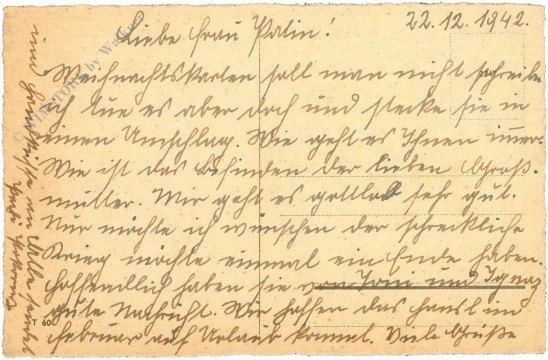 22.12.1942.
Liebe Frau Palin!
Weihnachtskarten soll man nicht schreiben
ich tue es aber doch und stecke sie in
einen Umschlag. Wie geht es Ihnen immer.
Wie ist das Befinden der lieben Groß-
mutter. Mir geht es gottlob sehr gut.
Nur möchte ich wünschen der schreckliche
Krieg möchte einmal ein Ende haben.
Hoffendlich haben sie von Toni und Ignaz
gute Nachricht. Wir hoffen das Hansl im
Februar auf Urlaub kommt. Viele Grüße
und
T 60